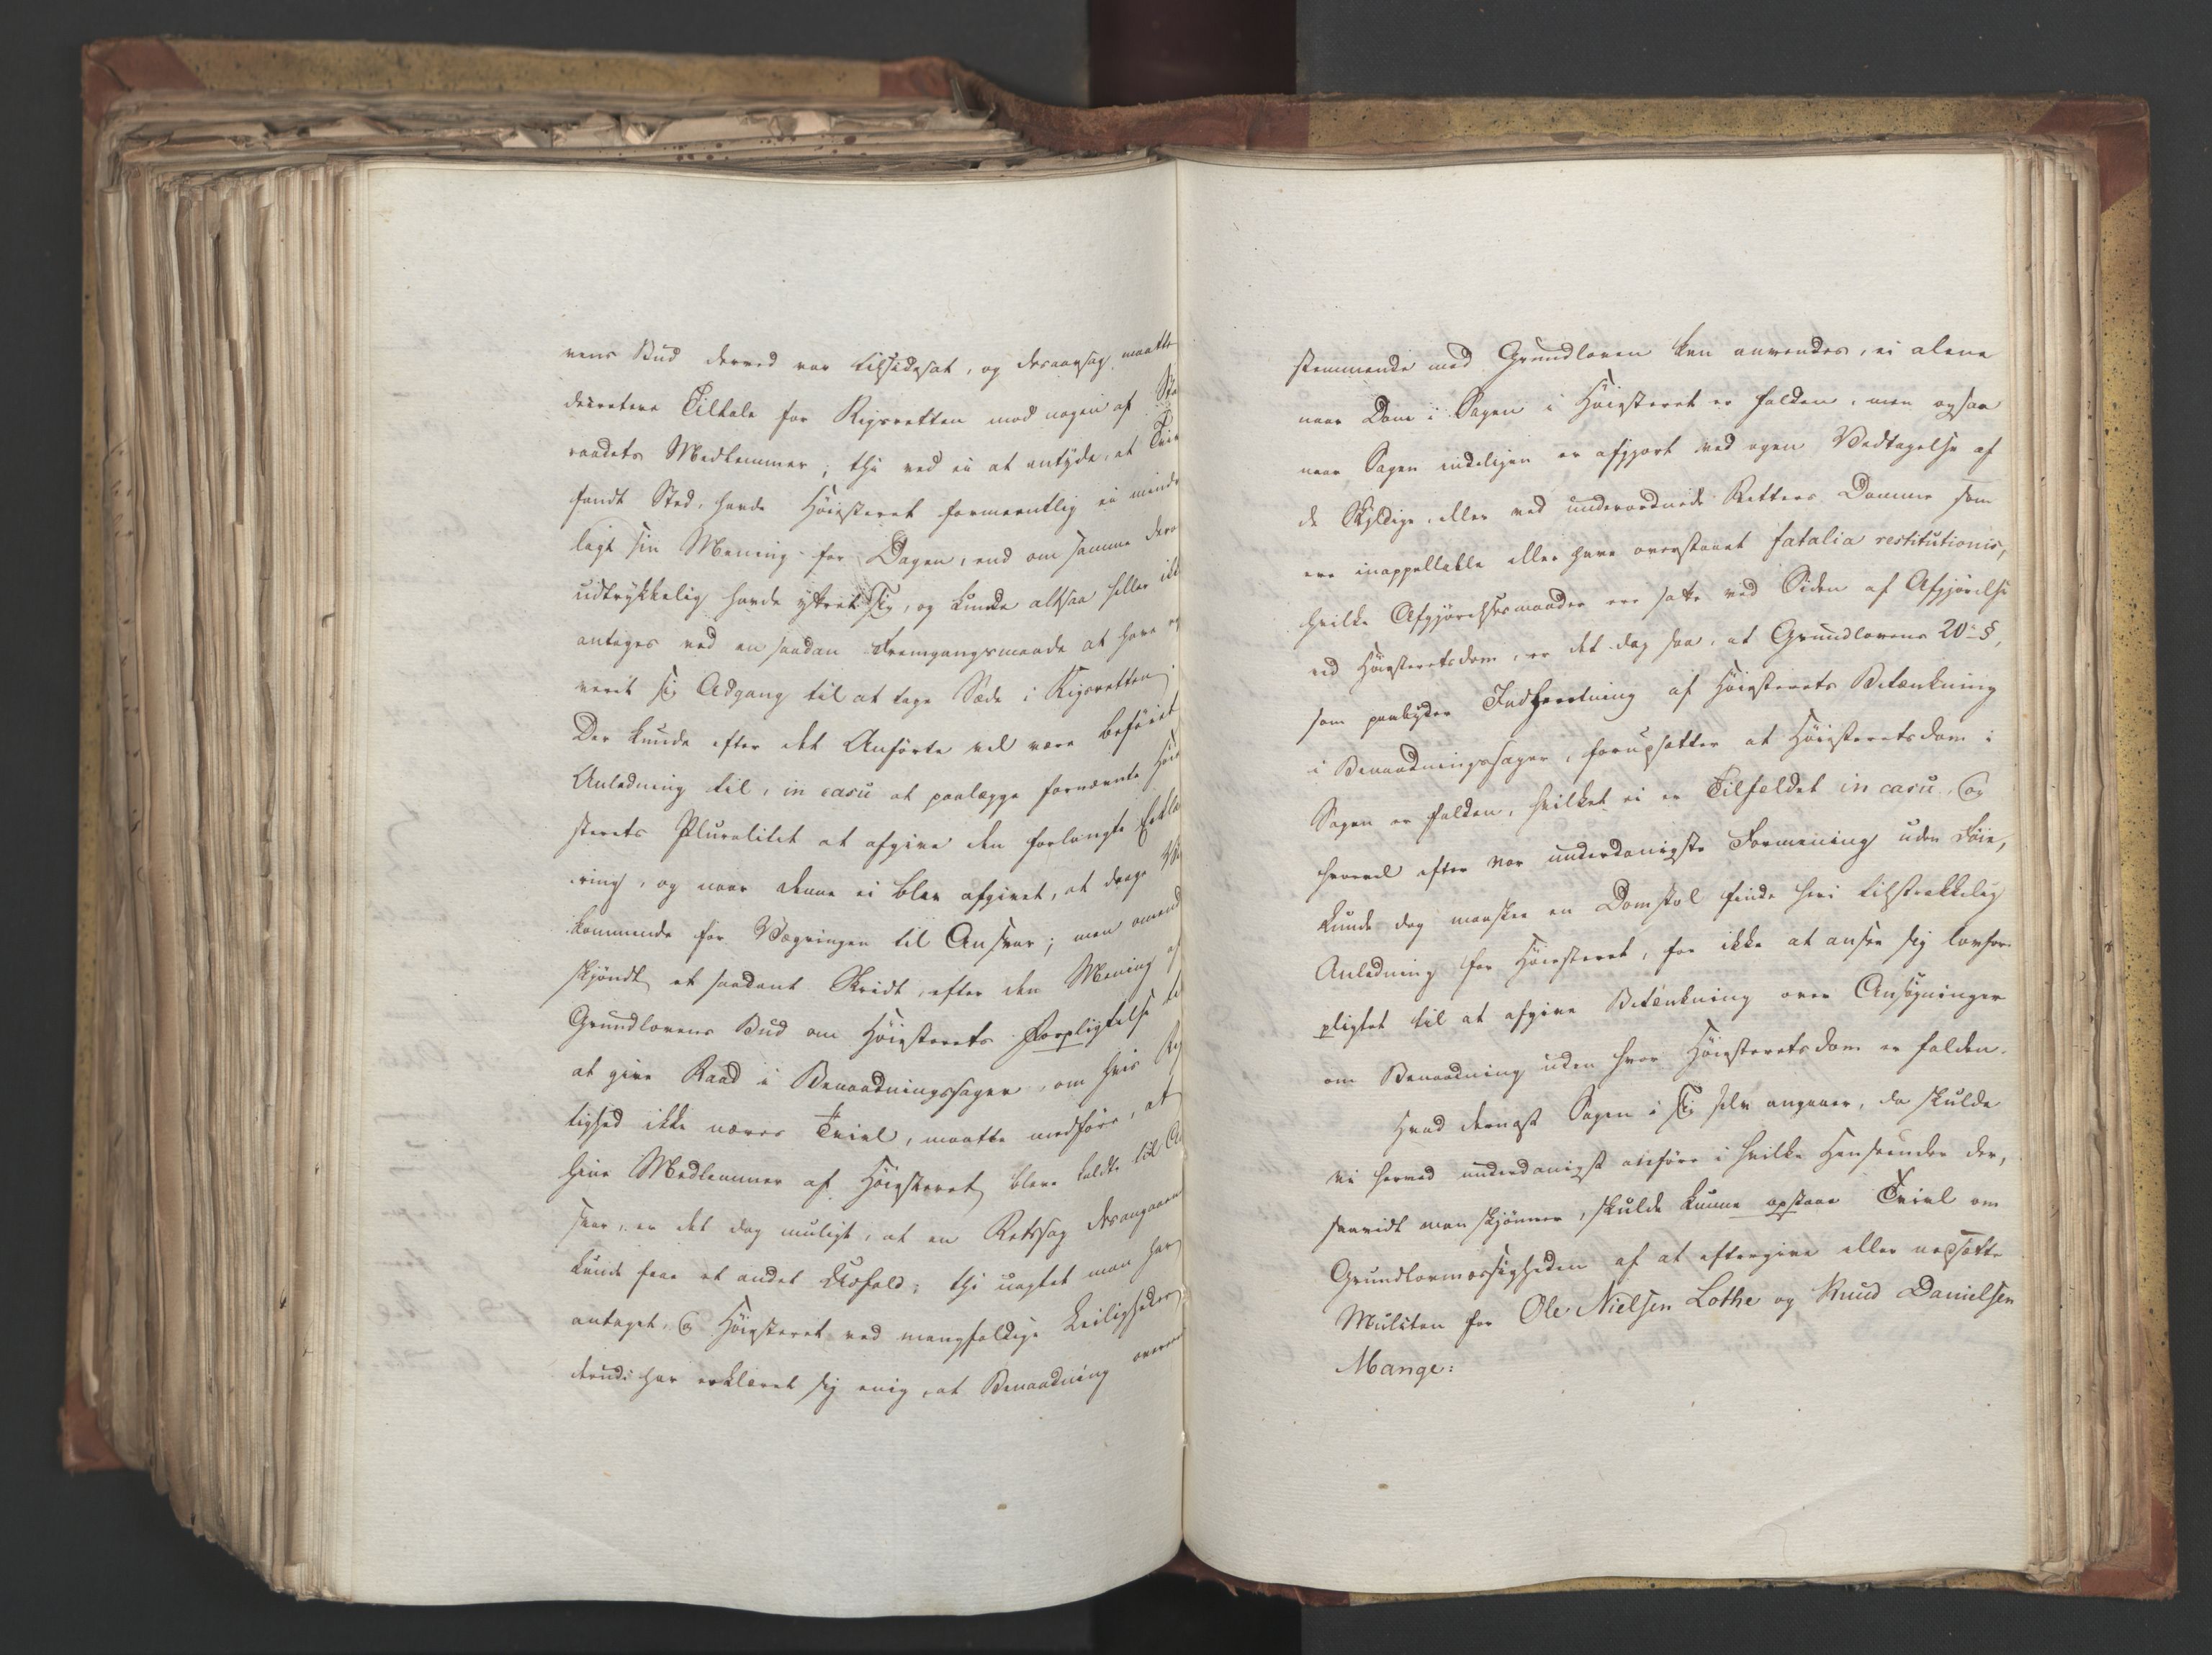 vens Bud derved var tilsidesat, og desaarsag maatte
decretere Tiltale for Rigsretten mod nogen af
raadets Medlemmer; thi ved ei at antyde, at
fandt Sted, havde Höiesteret formeentlig ei
lagt sin Mening for Dagen, end om samme
udtrykkelig havde yttret sig, og kunde altsaa heller
antages ved en saadan Fremgangsmaade at have
veret sig Adgang til at tage Sæde i Rigsretten
Der kunde efter det Anförte vel være beföiet
Anledning til, in casu at paalægge fornævnte
sterets Pluralitet at afgive den forlangte
ring, og naar denne ei blev afgivet, at drage
kommende for Vægringen til Ansvar; men
skjöndt et saadant Skridt, efter den Mening af
Grundlovens Bud om Höiesterets Forpligtelse
at give Raad i Benaadningssager, om hvis
tighed ikke næres Tvivl, maatte medföre, at
hine Medlemmer af Höiesteret bleve kaldte til
svar, er det dog muligt, at en Retssag
kunde faae et andet Udfald; thi uagtet man har
antaget, og Höiesteret ved mangfoldige Leiligheder
derudi har erklæret sig enig, at Benaadning
stemmende med Grundloven kan anvendes, ei alene
naar Dom i Sagen i Höiesteret er falden, men ogsaa
naar Sagen endeligen er afgjort ved egen Vedtagelse af
de Skyldige, eller ved underordnede Retters Domme som
ere inappellable eller have overstaaet fatalia restitutionis,
hvilke Afgjörelsesmaader ere satte ved Siden af Afgjörelse
ved Höiesteretsdom, er det dog saa, at Grundlovens 20de §,
som paabyder Indhentning af Höiesterets Betænkning
i Benaadningssager, forudsætter at Höiesteretsdom i
Sagen er falden, hvilket ei er Tilfældet in casu. Og
hvorvel efter vor underdanigste Formening uden Föie,
kunde dog maaskee en Domstol finde heri tilstrækkelig
Anledning for Höiesteret, for ikke at ansee sig lovfor-
pligtet til at afgive Betænkning over Ansögninger
om Benaadning uden hvor Höiesteretsdom er falden.
Hvad dernæst Sagen i sig selv angaaer, da skulde
vi herved underdanigst anföre i hvilke Henseender der,
saavidt man skjönner, skulde kunne opstaae Tvivl om
Grundlovmæssigheden af at eftergive eller nedsætte
Mulkten for Ole Nielsen Lothe og Knud Danielsen
Mange: